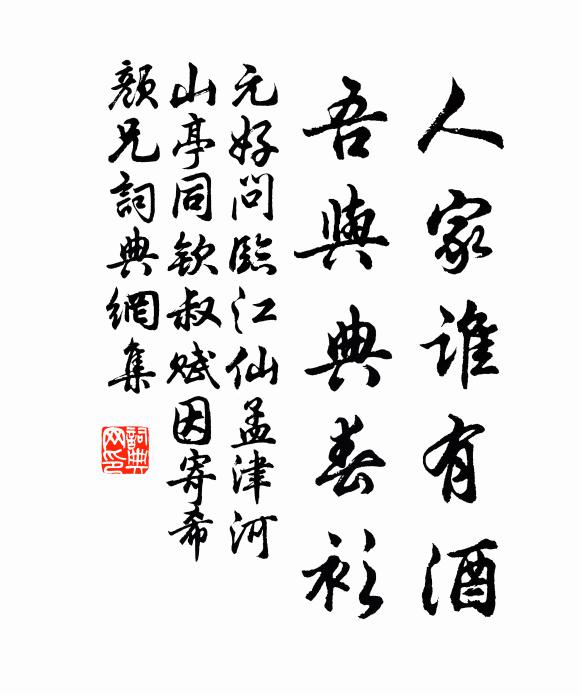 人家谁有酒
吾與典春衫
元好問臨江仙孟津河
山亭同欽叔賦因寄希
顏兄詞典網集
詞典
网印